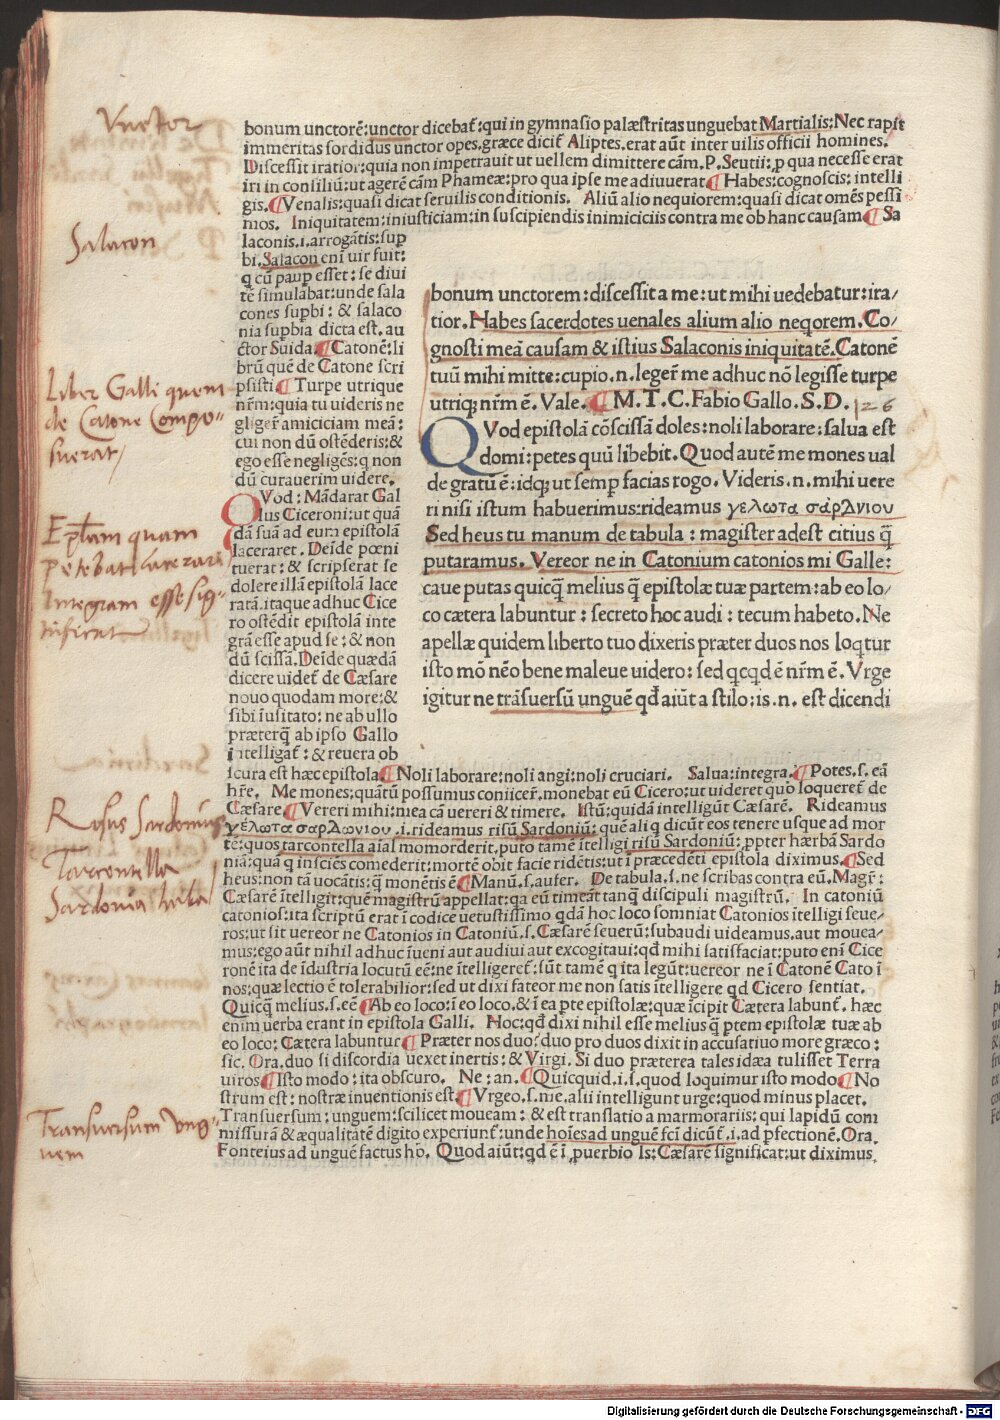 Unctor
bonum unctorē: unctor dicebat̄: qui in gymnasio palæstritas unguebat Martialis: Nec rapit
immeritas sordidus unctor opes. græce dicit̄ Aliptes. erat aūt inter uilis officii homines.
Discessit iratior: quia non impetrauit ut uellem dimittere cām. P. Seutii: ꝑ qua necesse erat
iri in consiliū: ut agerē cām Phameæ: pro qua ipse me adiuuerat ¶ Habes: cognoscis: intelli
gis. ¶ Venalis: quasi dicat seruilis conditionis. Aliū alio nequiorem: quasi dicat omēs pessi
mos. Iniquitatem: iniusticiam: in suscipiendis inimiciciis contra me ob hanc causam ¶ Sa
Salacon
laconis. i. arrogātis: suꝑ
bi. Salacon enī uir fuit:
q cū paup̄ esset: se diui
tē simulabat: unde sala
cones supbi: & salaco
nia supbia dicta est. au
ctor Suida. ¶ Catonē: li
brū quē de Catone scri
psisti ¶ Turpe utrique
nr̄m: quia tu uideris ne
gligere amiciciam meā:
cui non dū ostēderis: &
ego esse negligēs: q non
dū curauerim uidere.
Liber Galli quem
de Catone Compo-
suerat
QVod: Mādarat Gal
lus Ciceroni: ut quā
dā suā ad eum epistolā
laceraret. Deīde pœni
tuerat: & scripserat se
dolere illā epistolā lace
ratā. itaque adhuc Cice
ro ostēdit epistolā inte
grā esse apud se: & non
dū scissā. Deīde quædā
dicere uidet̄ de Cæsare
nouo quodam more: &
sibi īusitato: ne ab ullo
præterq̄ ab ipso Gallo
ītelligat̄: & reuera ob
Ep̄tam quam
petebat lacerari
Integram esse sig-
nificat
bonum unctorem: discessit a me: ut mihi uedebatur: ira/
tior. Habes sacerdotes uenales alium alio neqorem. Co/
gnosti meā causam & istius Salaconis iniquitatē. Catonē
tuū mihi mitte: cupio. n. leger̄ me adhuc nō legisse turpe
utriq; nr̄m ē. Vale. ¶ M. T. C. Fabio Gallo. S. D. 126
QVod epistolā cōscissā doles: noli laborare: salua est
domi: petes quū libebit. Quod autē me mones ual
de gratū ē: idq; ut semp̄ facias rogo. Videris. n. mihi uere
ri nisi istum habuerimus: rideamus γελωτα σαρδνιου
Sed heus tu manum de tabula: magister adest citius q̄
putaramus. Vereor ne in Catonium catonios mi Galle:
caue putas quicq̄ melius q̄ epistolæ tuæ partem: ab eo lo/
co cætera labuntur: secreto hoc audi: tecum habeto. Ne
apellæ quidem liberto tuo dixeris præter duos nos loqtur
isto mō nēo bene maleue uidero: sed qcqd ē nr̄m ē. Vrge
igitur ne trāsuersū unguē qđ aiūt a stilo: is. n. est dicendi
scura est hæc epistola ¶ Noli laborare: noli angi: noli cruciari. Salua: integra. ¶ Potes. s. eā
hr̄e. Me mones: quātū possumus coniicer̄. monebat eū Cicero: ut uideret quo loqueret̄ de
Cæsare ¶ Vereri mihi: mea cā uereri & timere. Istū: quidā intelligūt Cæsarē. Rideamus
γελωτα σαρδωνιου. i. rideamus risū Sardoniū: quē ali q dicūt eos tenere usque ad mor
tē: quos tarcontella aīal momorderit. puto tamē ītelligi risū Sardoniū: ꝓpter hærbā Sardo
niā: quā q insciēs comederit: mortē obit facie ridētis: ut ī præcedēti epistola diximus. ¶ Sed
heus: non tā uocātis: q̄ monētis ē ¶ Manū. s. aufer. De tabula. s. ne scribas contra eū. Magr̄:
Cæsarē ītelligit: quē magistrū appellat: qa eū timeāt tanq̄ discipuli magistrū. In catoniū
catonios: ita scriptū erat ī codice uetustissimo qdā hoc loco somniat Catonios ītelligi seue/
ros: ut sit uereor ne Catonios in Catoniū. s. Cæsarē seuerū: subaudi uideamus. aut mouea/
mus: ego aūt nihil adhuc īueni aut audiui aut excogitaui: qđ mihi satisfaciat: puto enī Cice
ronē ita de īdustria locutū eē: ne ītelligeret̄: sūt tamē q ita legūt: uereor ne ī Catonē Cato ī
nos: quæ lectio ē tolerabilior: sed ut dixi fateor me non satis ītelligere qđ Cicero sentiat.
Quicq̄ melius. s. eē ¶ Ab eo loco: ī eo loco. & ī ea pte epistolæ: quæ īcipit Cætera labunt̄. hæc
enim uerba erant in epistola Galli. Hoc: qđ dixi nihil esse melius q̄ ptem epistolæ tuæ ab
eo loco: Cætera labuntur ¶ Præter nos duo: duo pro duos dixit in accusatiuo more græco:
sic. Ora. duo si discordia uexet inertis: & Virgi. Si duo præterea tales idæa tulisset Terra
uiros ¶ Isto modo: ita obscuro. Ne: an. ¶ Quicquid. i. s. quod loquimur isto modo ¶ No
strum est: nostræ inuentionis est. ¶ Vrgeo. s. me. alii intelligunt urge: quod minus placet.
Transuersum: unguem: scilicet moueam: & est translatio a marmorariis: qui lapidū com
missurā & æqualitatē digito experiunt̄: unde hoīes ad unguē fcī dicūt̄. i. ad pfectionē. Ora.
Fonteius ad unguē factus ho. Quod aiūt: qđ ē ī ꝓuerbio Is: Cæsarē significat: ut diximus.
Risus Sardonius
Tarcontella
Sardonia herba
Transuersum Ung-
uem
Digitalisierung gefördert durch die Deutsche Forschungsgemeinschaft - DFG